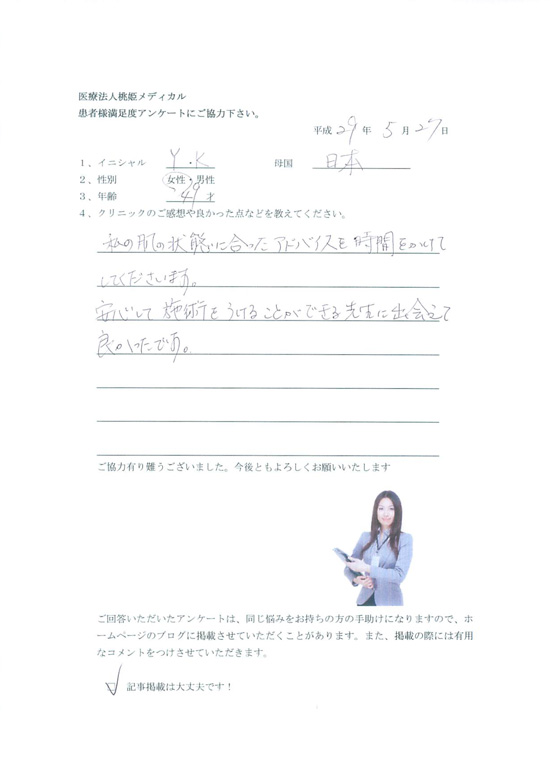 医療法人桃姫メディカル
患者様満足度アンケートにご協力下さい。
平成 29 年 5 月 27 日
1、イニシャル Y・K 母国 日本
2、性別 女性・男性
3、年齢 49 才
4、クリニックのご感想や良かった点などを教えてください。
私の肌の状態に合ったアドバイスを時間をかけて
してくださいます。
安心して施術をうけることができる先生に出会えて
良かったです。
ご協力有り難うございました。今後ともよろしくお願いいたします
ご回答いただいたアンケートは、同じ悩みをお持ちの方の手助けになりますので、ホ
ームページのブログに掲載させていただくことがあります。また、掲載の際には有用
なコメントをつけさせていただきます。
記事掲載は大丈夫です！